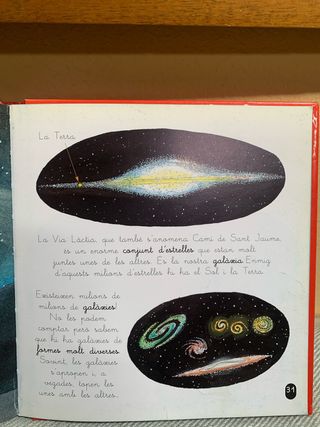 La Terra
La Via Làctia, que també s'anomena Camí de Sant Jaume,
és un enorme conjunt d'estrelles que estan molt
juntes unes de les altres. És la nostra galàxia. Enmig
d'aquests milions d'estrelles hi ha el Sol i la Terra.
Existeixen milions de
milions de galàxies!
No les podem
comptar però sabem
que hi ha galàxies de
formes molt diverses.
Sovint, les galàxies
s'apropen i, a
vegades, topen les
unes amb les altres.
31